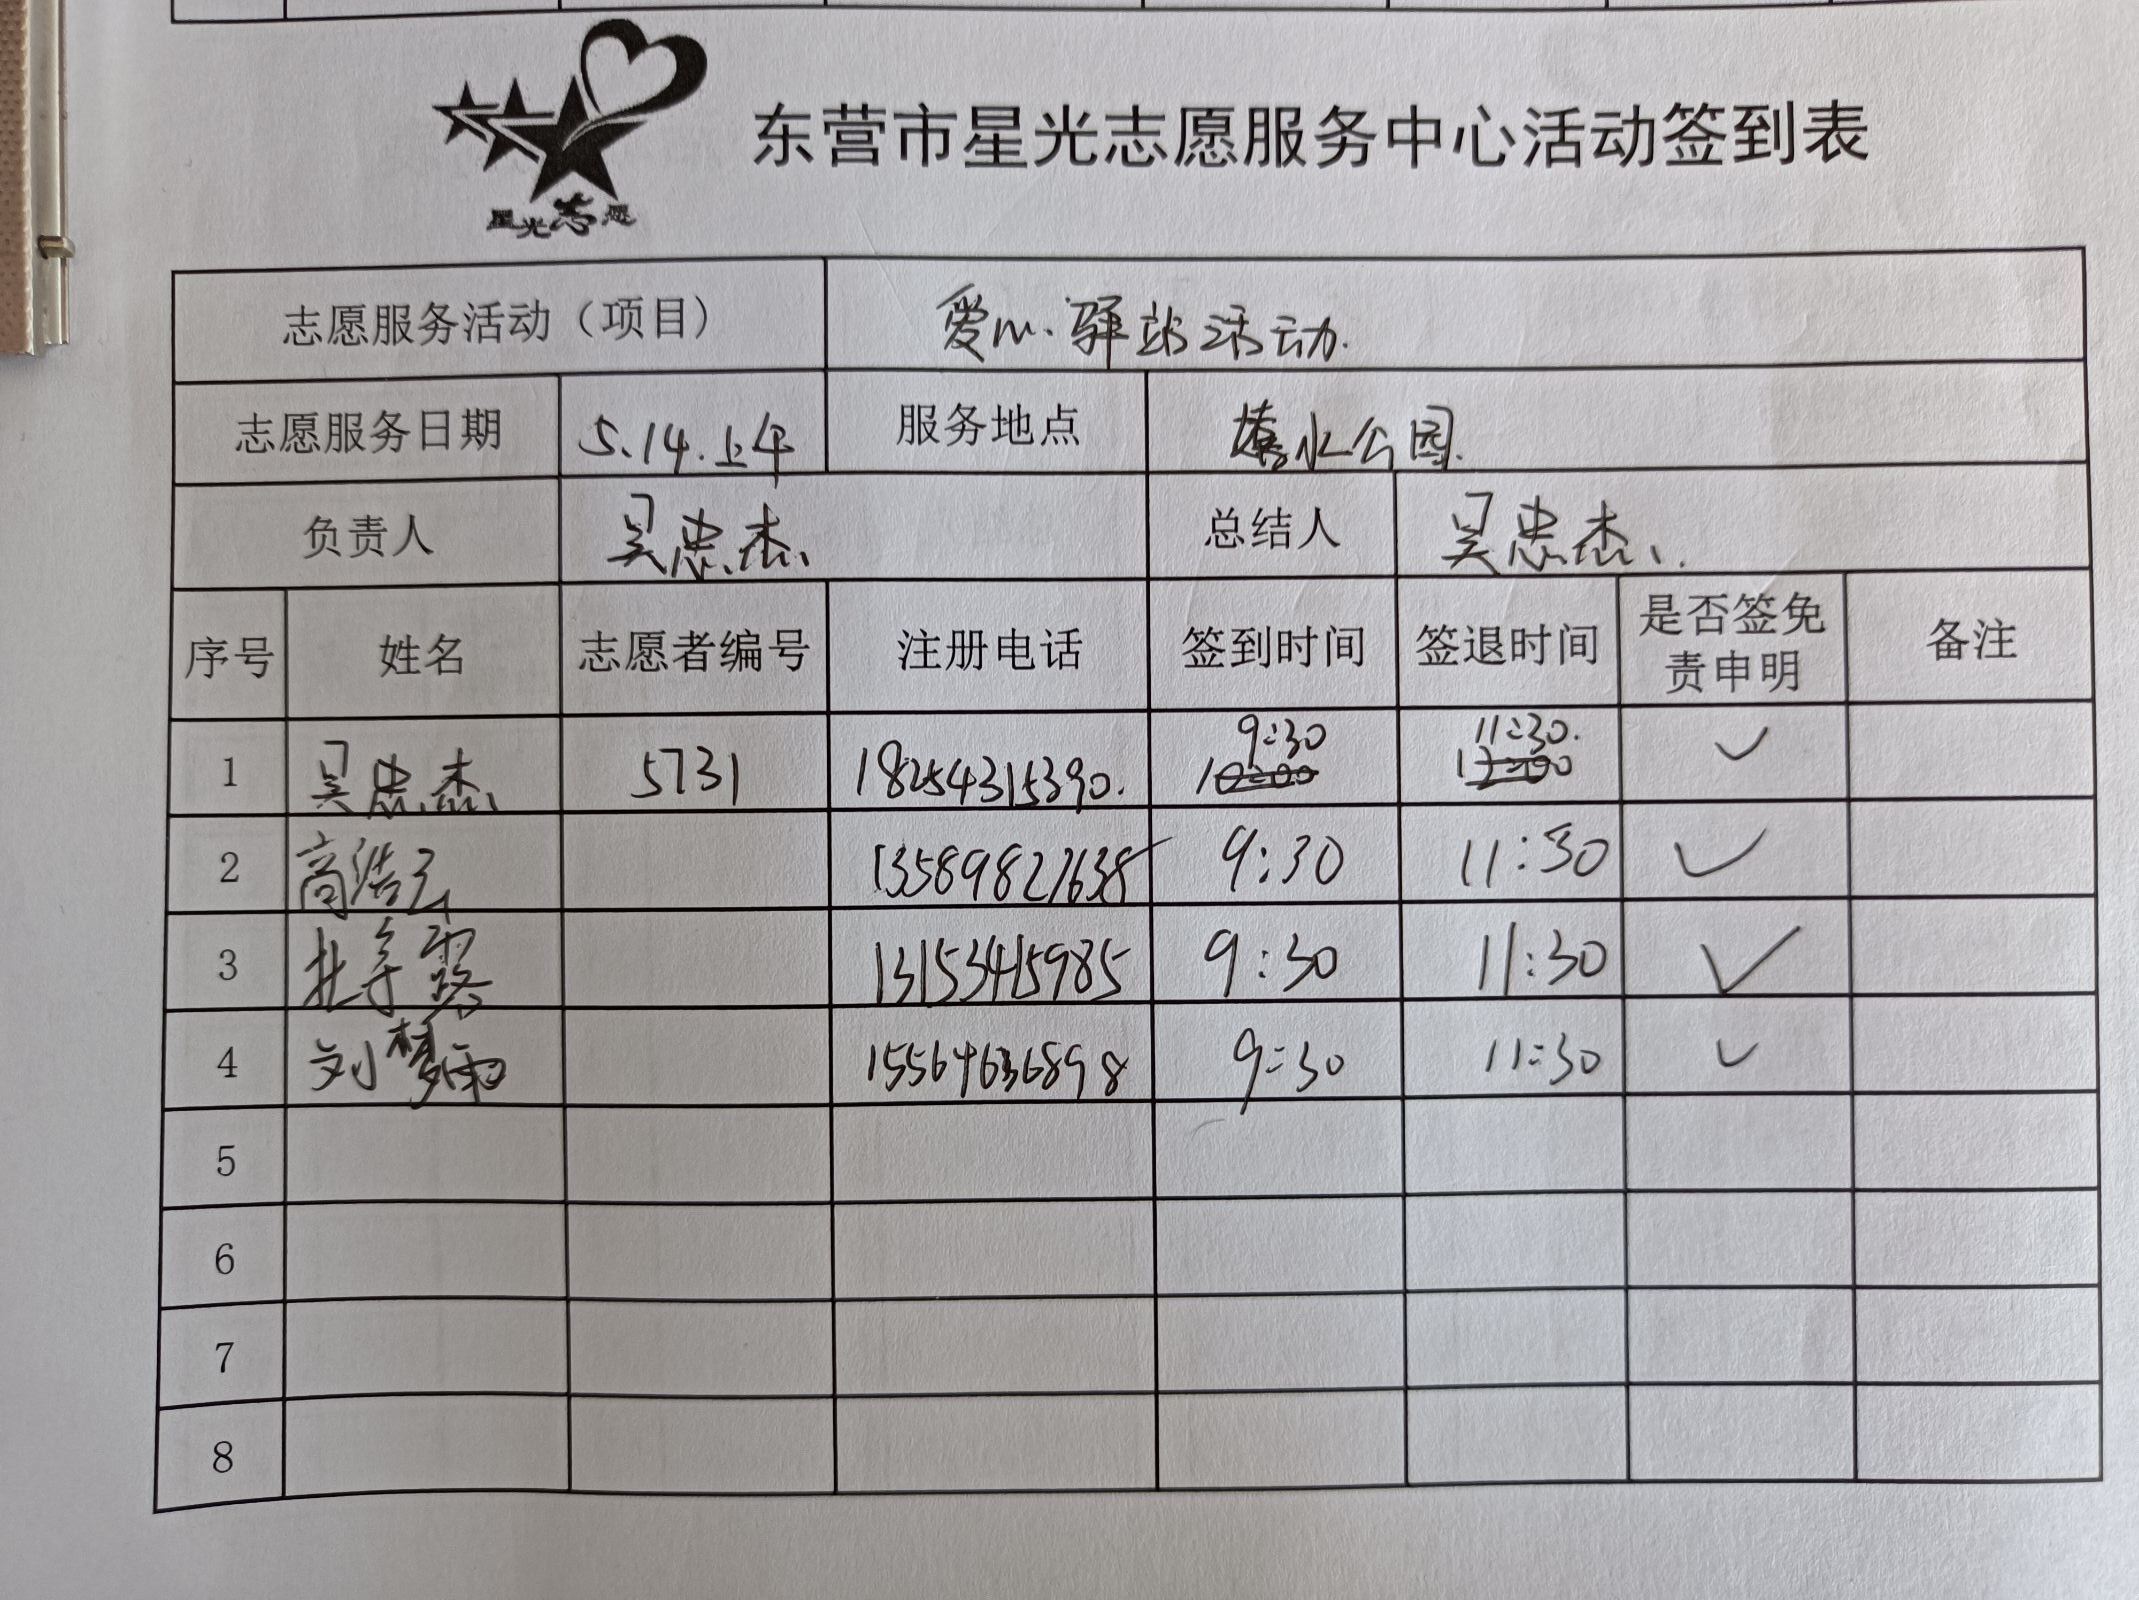 东营市星光志愿服务中心活动签到表
星光志愿
志愿服务活动（项目） 爱心驿站活动.
志愿服务日期 5.14.上午 服务地点 水公园.
负责人 吴忠杰 总结人 吴忠杰
序号 姓名 志愿者编号 注册电话 签到时间 签退时间 是否签免责申明 备注
1 吴忠杰 5731 18254315390. 9:30 11:30. ✓
2 商浩 13589827638 9:30 11:30 ✓
3 杜 露 13153415985 9:30 11:30 ✓
4 刘梦雨 15564636898 9:30 11:30 ✓
5
6
7
8